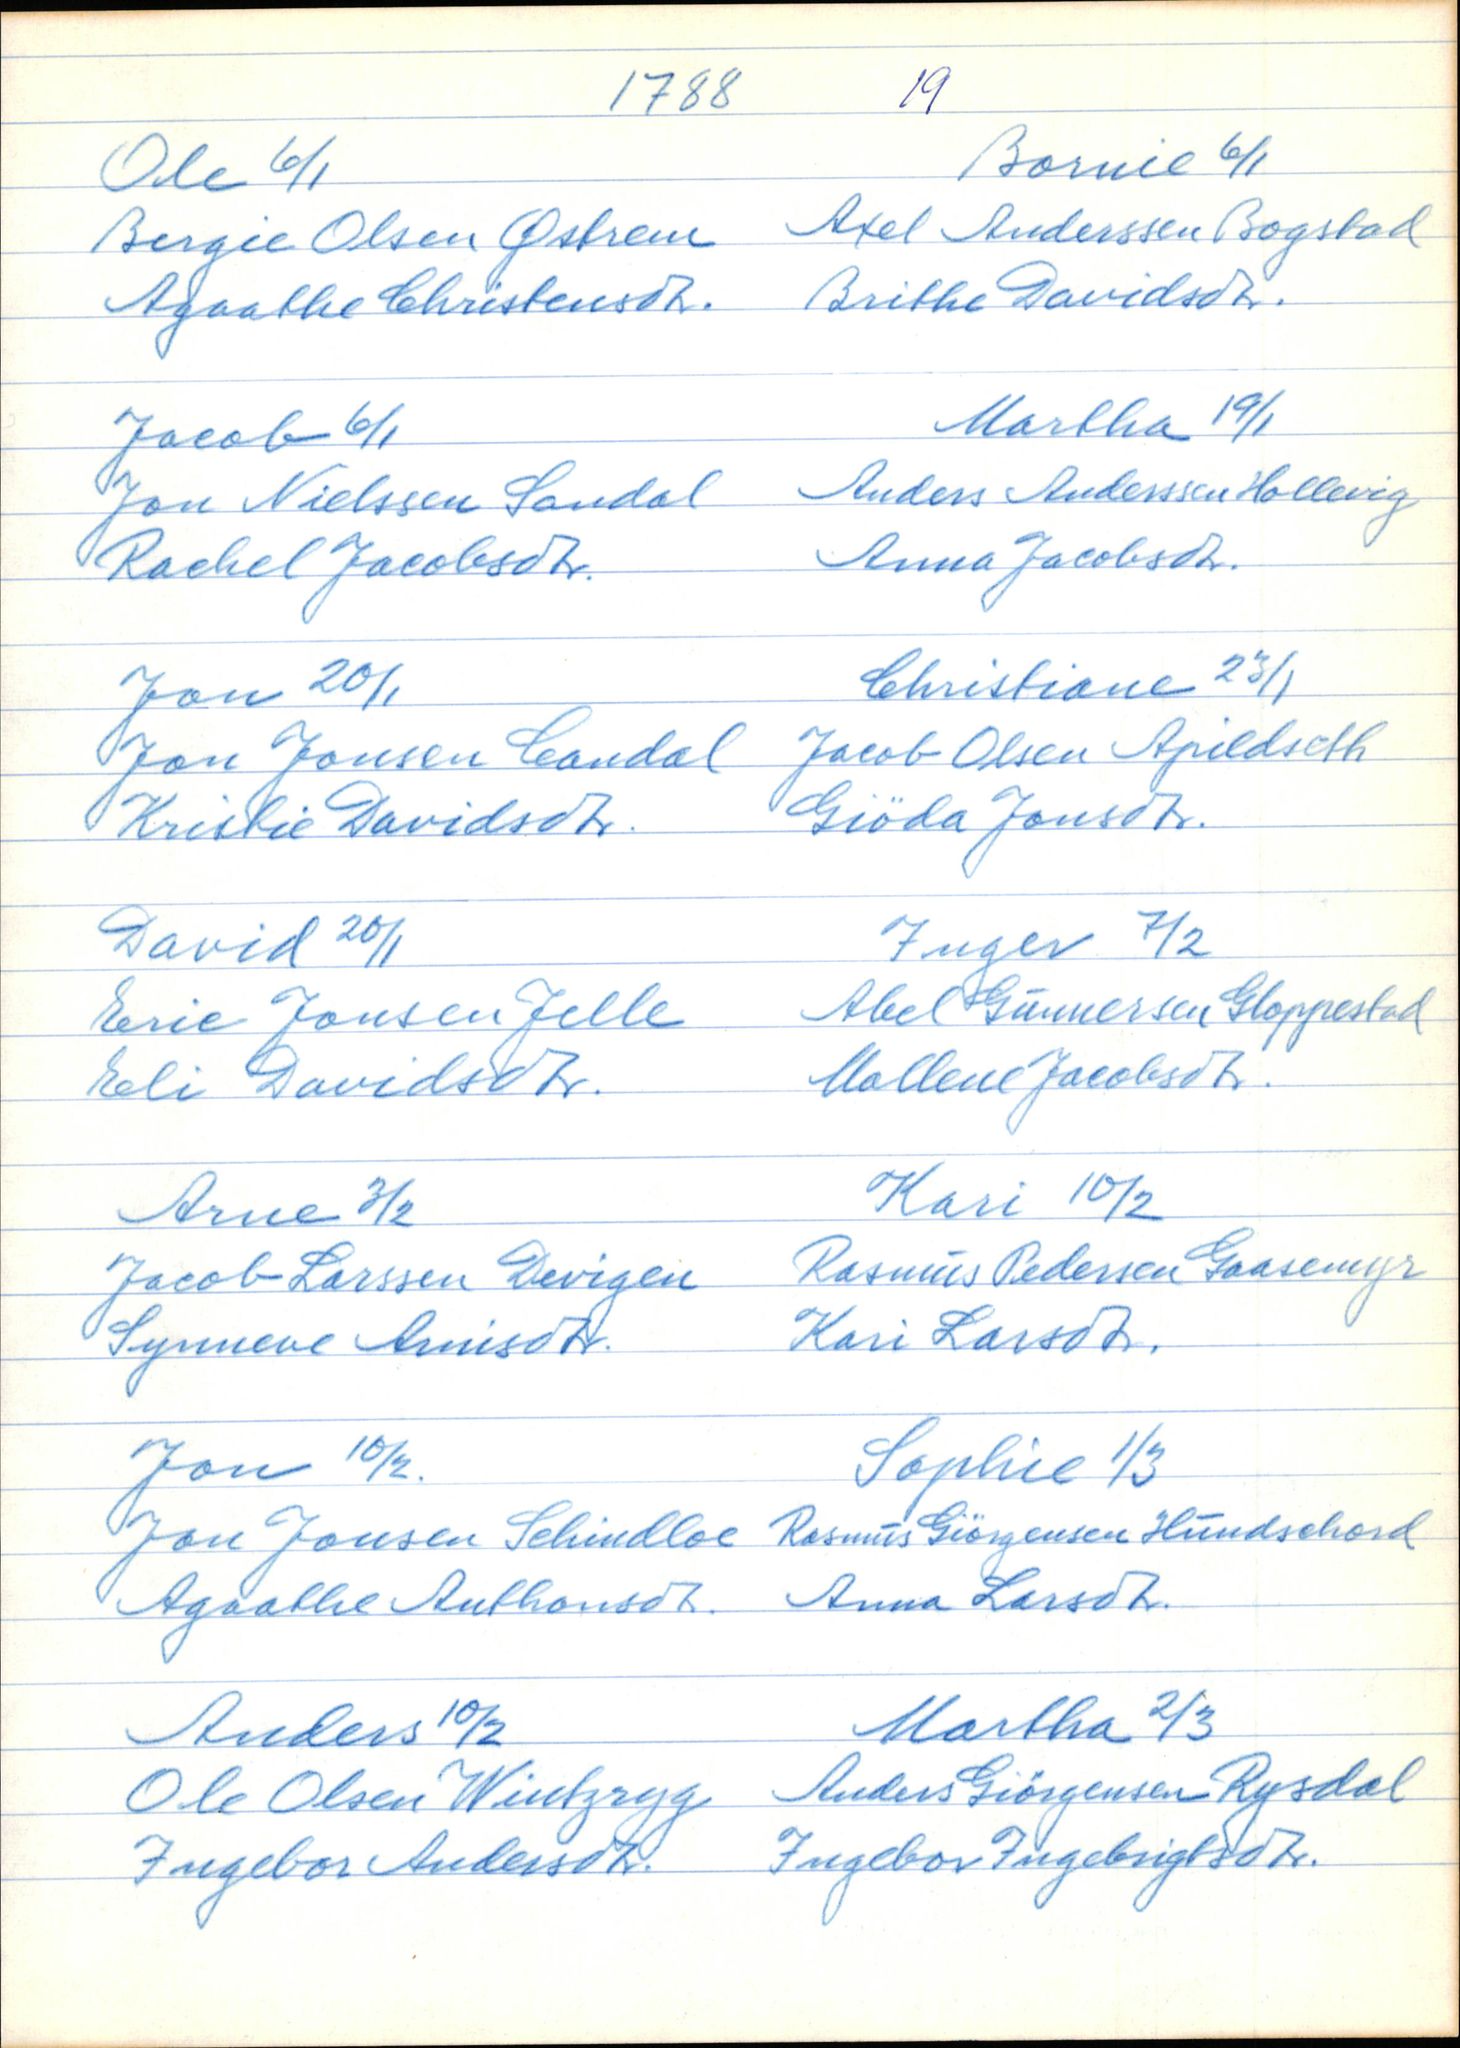 1788 19
Ole 6/1
Bergie Olsen Østrem
Agaathe Christensdtr.
Jacob 6/1
Jon Nielssen Sandal
Rachel Jacobsdtr.
Jon 20/1
Jon Jonsen Candal
Kristie Davidsdtr.
David 20/1
Eric Jonsen Jelle
Eli Davidsdtr.
Arne 3/2
Jacob Larssen Devigen
Synneve Arnisdtr.
Jon 10/2.
Jon Jonsen Schindloe
Agaathe Anthonsdtr.
Anders 10/2
Ole Olsen Wintzryg
Ingebor Andersdtr.
Bornie 6/1
Axel Anderssen Bogstad
Brithe Davidsdtr.
Martha 19/1
Anders Anderssen Hollevig
Anna Jacobsdtr.
Christiane 23/1
Jacob Olsen Apildseth
Giöda Jonsdtr.
Inger 7/2
Abel Gunnersen Gloppestad
Mallene Jacobsdtr.
Kari 10/2
Rasmus Pedersen Gaasemyr
Kari Larsdtr.
Sophie 1/3
Rasmus Giörgensen Hundschord
Anna Larsdtr.
Martha 2/3
Anders Giörgensen Rysdal
Ingebor Ingebrigtsdtr.